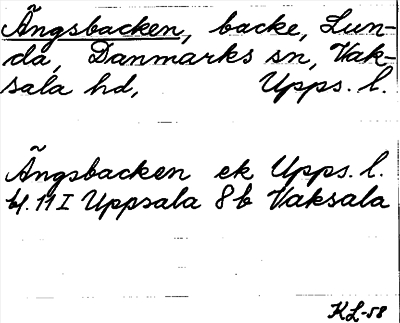 Ängsbacken, backe, Lun-
da, Danmarks sn, Vak-
sala hd, Upps. l.
Ängsbacken ek Upps. l.
bl. 11 I Uppsala 8b Vaksala
KL-58